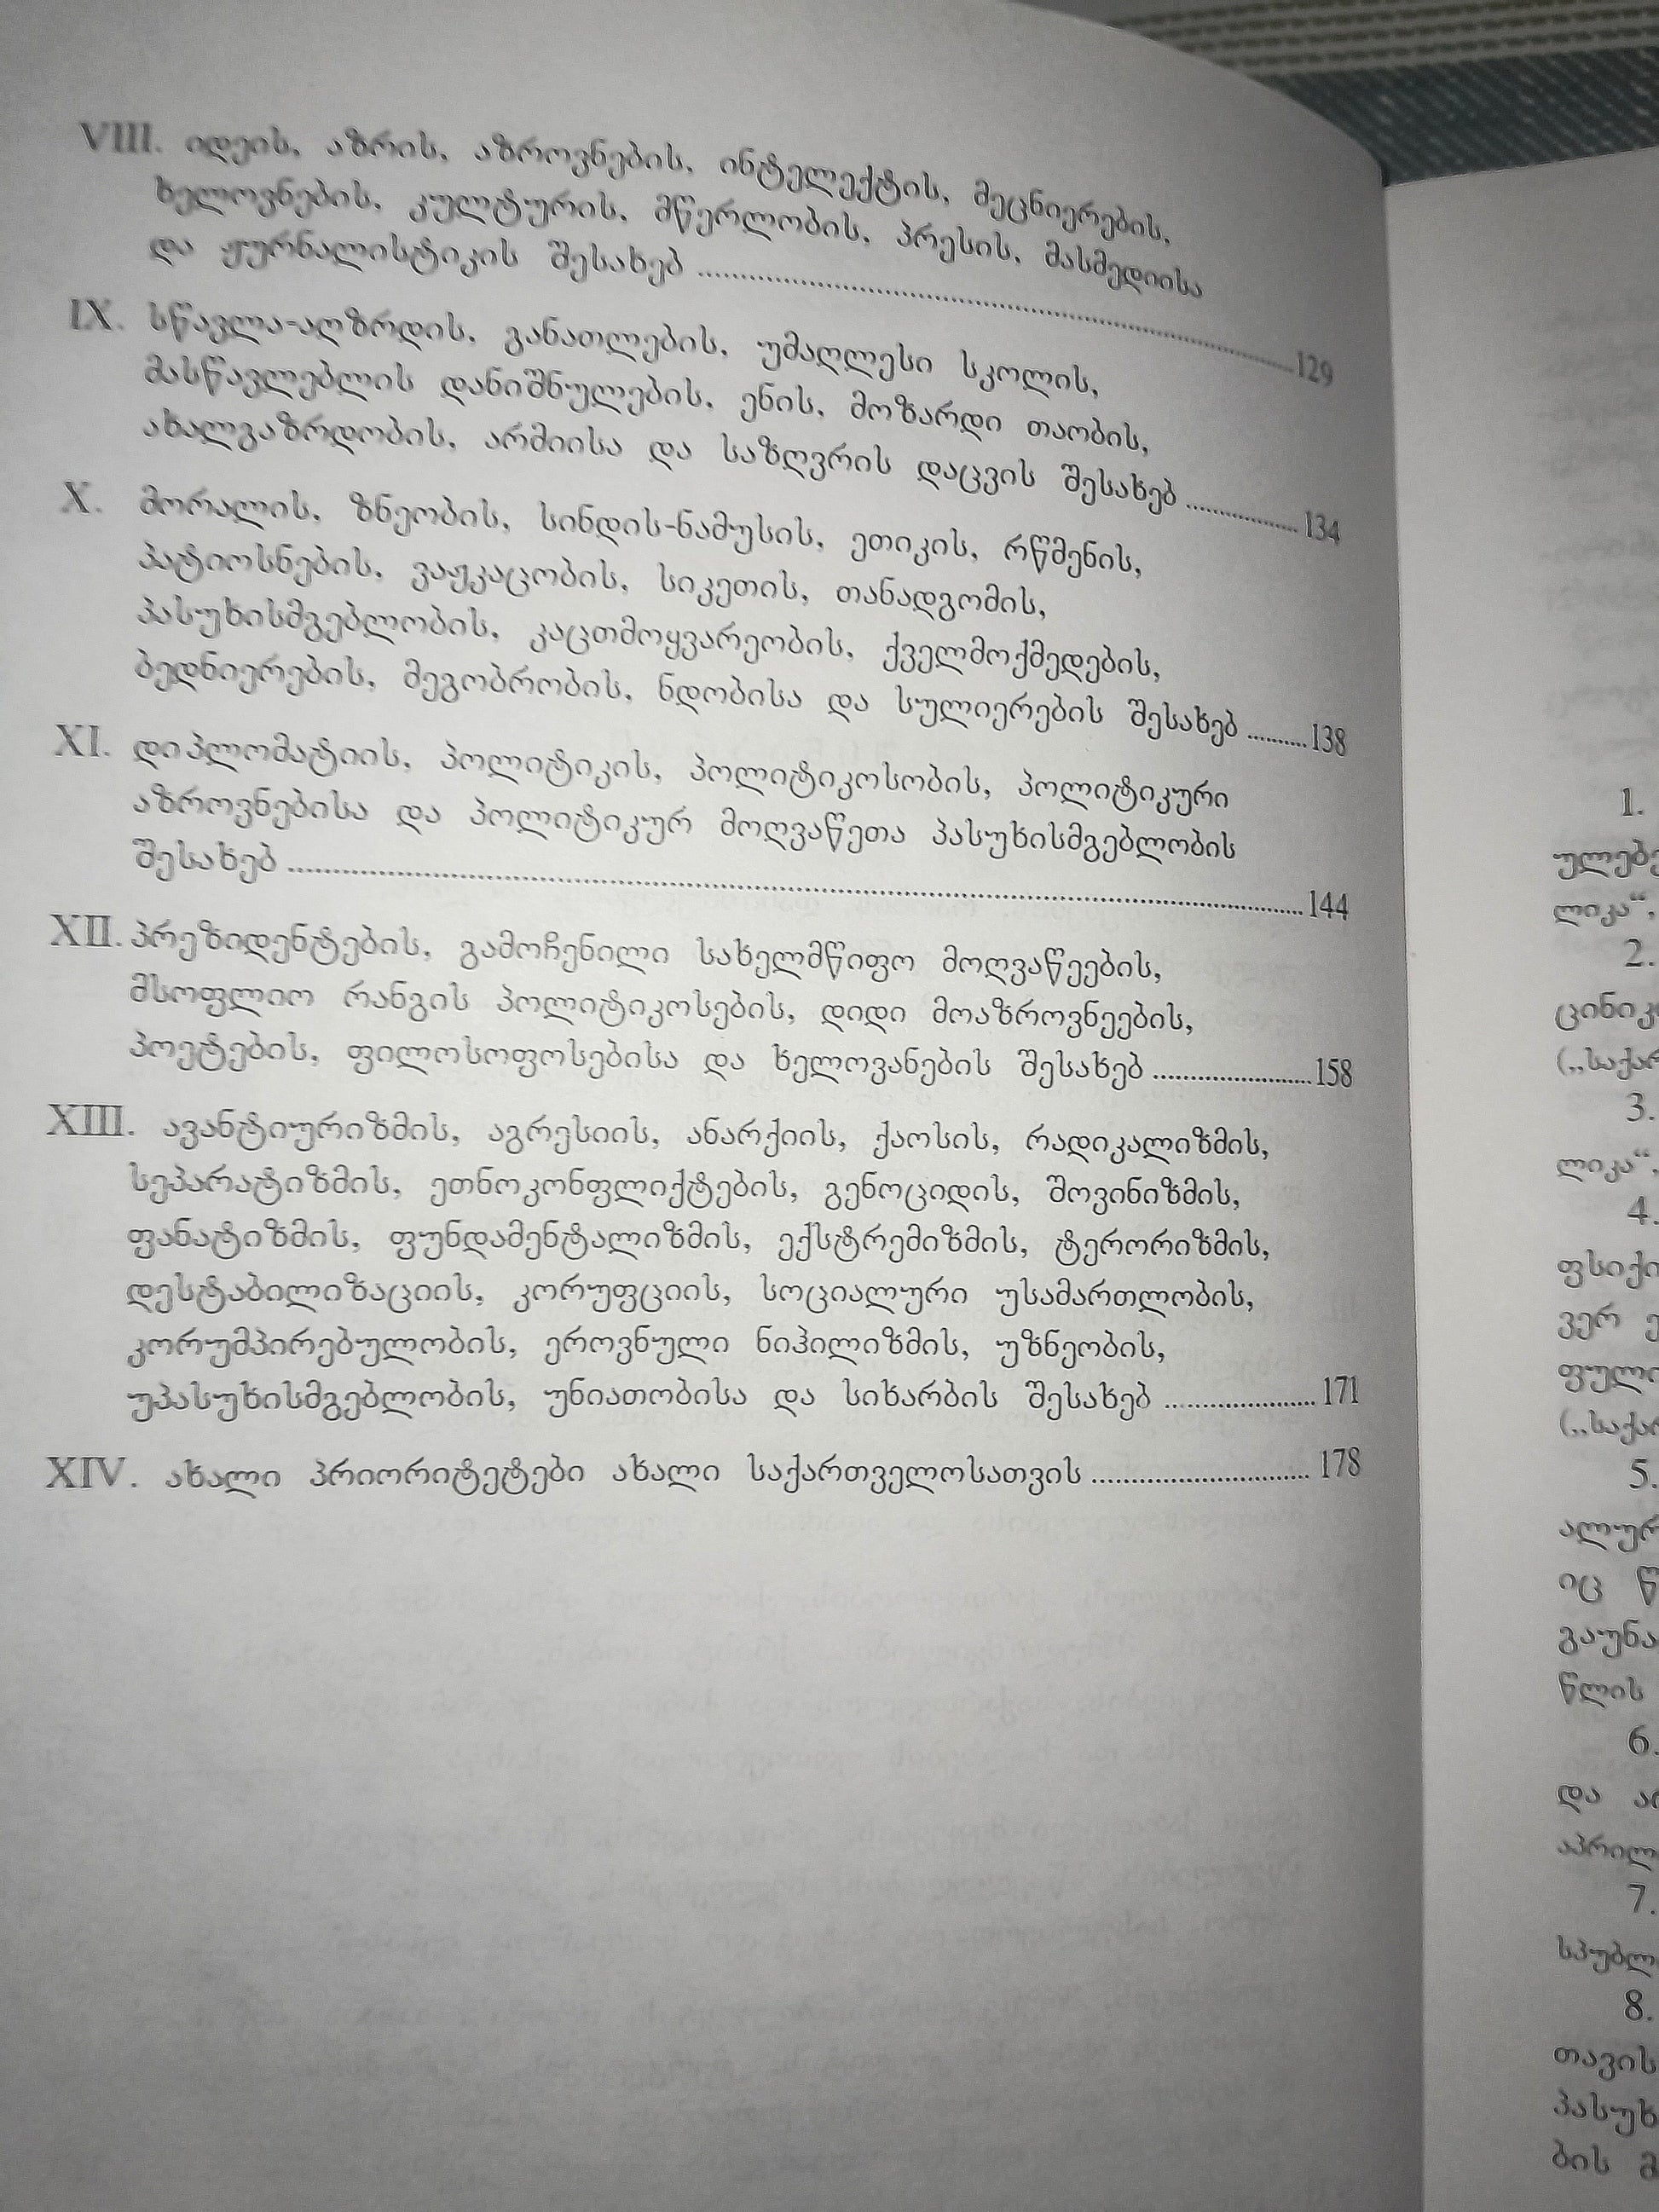 VIII. იდეის, აზრის, აზროვნების, ინტელექტის, მეცნიერების,
ხელოვნების, კულტურის, მწერლობის, პრესის, მასმედიისა
და ჟურნალისტიკის შესახებ ........................................................129
IX. სწავლა-აღზრდის, განათლების, უმაღლესი სკოლის,
მასწავლებლის დანიშნულების, ენის, მოზარდი თაობის,
ახალგაზრდობის, არმიისა და საზღვრის დაცვის შესახებ .................134
X. მორალის, ზნეობის, სინდის-ნამუსის, ეთიკის, რწმენის,
პატიოსნების, ვაჟკაცობის, სიკეთის, თანადგომის,
პასუხისმგებლობის, კაცთმოყვარეობის, ქველმოქმედების,
ბედნიერების, მეგობრობის, ნდობისა და სულიერების შესახებ ..........138
XI. დიპლომატიის, პოლიტიკის, პოლიტიკოსობის, პოლიტიკური
აზროვნებისა და პოლიტიკურ მოღვაწეთა პასუხისმგებლობის
შესახებ ........................................................................................144
XII. პრეზიდენტების, გამოჩენილი სახელმწიფო მოღვაწეების,
მსოფლიო რანგის პოლიტიკოსების, დიდი მოაზროვნეების,
პოეტების, ფილოსოფოსებისა და ხელოვანების შესახებ ..........................158
XIII. ავანტიურიზმის, აგრესიის, ანარქიის, ქაოსის, რადიკალიზმის,
სეპარატიზმის, ეთნოკონფლიქტების, გენოციდის, შოვინიზმის,
ფანატიზმის, ფუნდამენტალიზმის, ექსტრემიზმის, ტერორიზმის,
დესტაბილიზაციის, კორუფციის, სოციალური უსამართლობის,
კორუმპირებულობის, ეროვნული ნიჰილიზმის, უზნეობის,
უპასუხისმგებლობის, უნიათობისა და სიხარბის შესახებ ........................171
XIV. ახალი პრიორიტეტები ახალი საქართველოსათვის ................................178
1.
ლიკა“,
2.
3.
ლიკა“,
4.
ვერ
5.
იც
წლის
6.
და
7.
8.
ბის